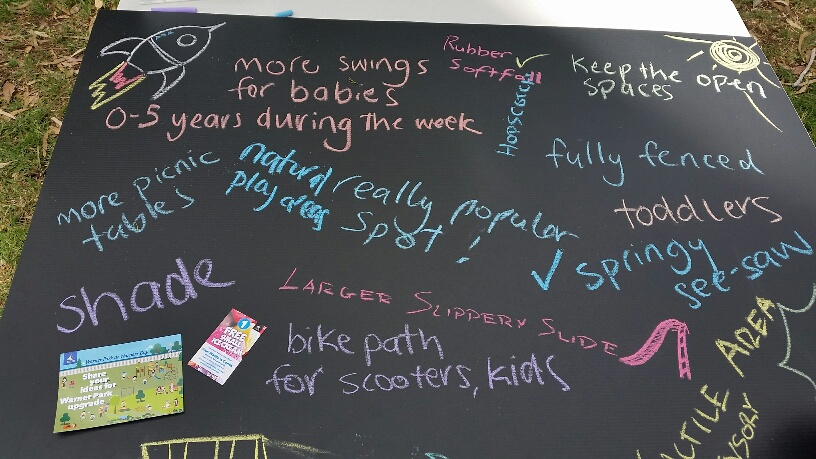 more swings
for babies
0-5 years during the week
Rubber
Softfall
Hopscotch
Keep the
spaces open
fully fenced
toddlers
more picnic
tables
natural
play areas
really popular
spot!
springy
see-saw
shade
LARGER SLIPPERY SLIDE
bike path
for scooters, kids
Share
your
ideas for
Warner Park
upgrade
1
FREE
SMALL
AREA